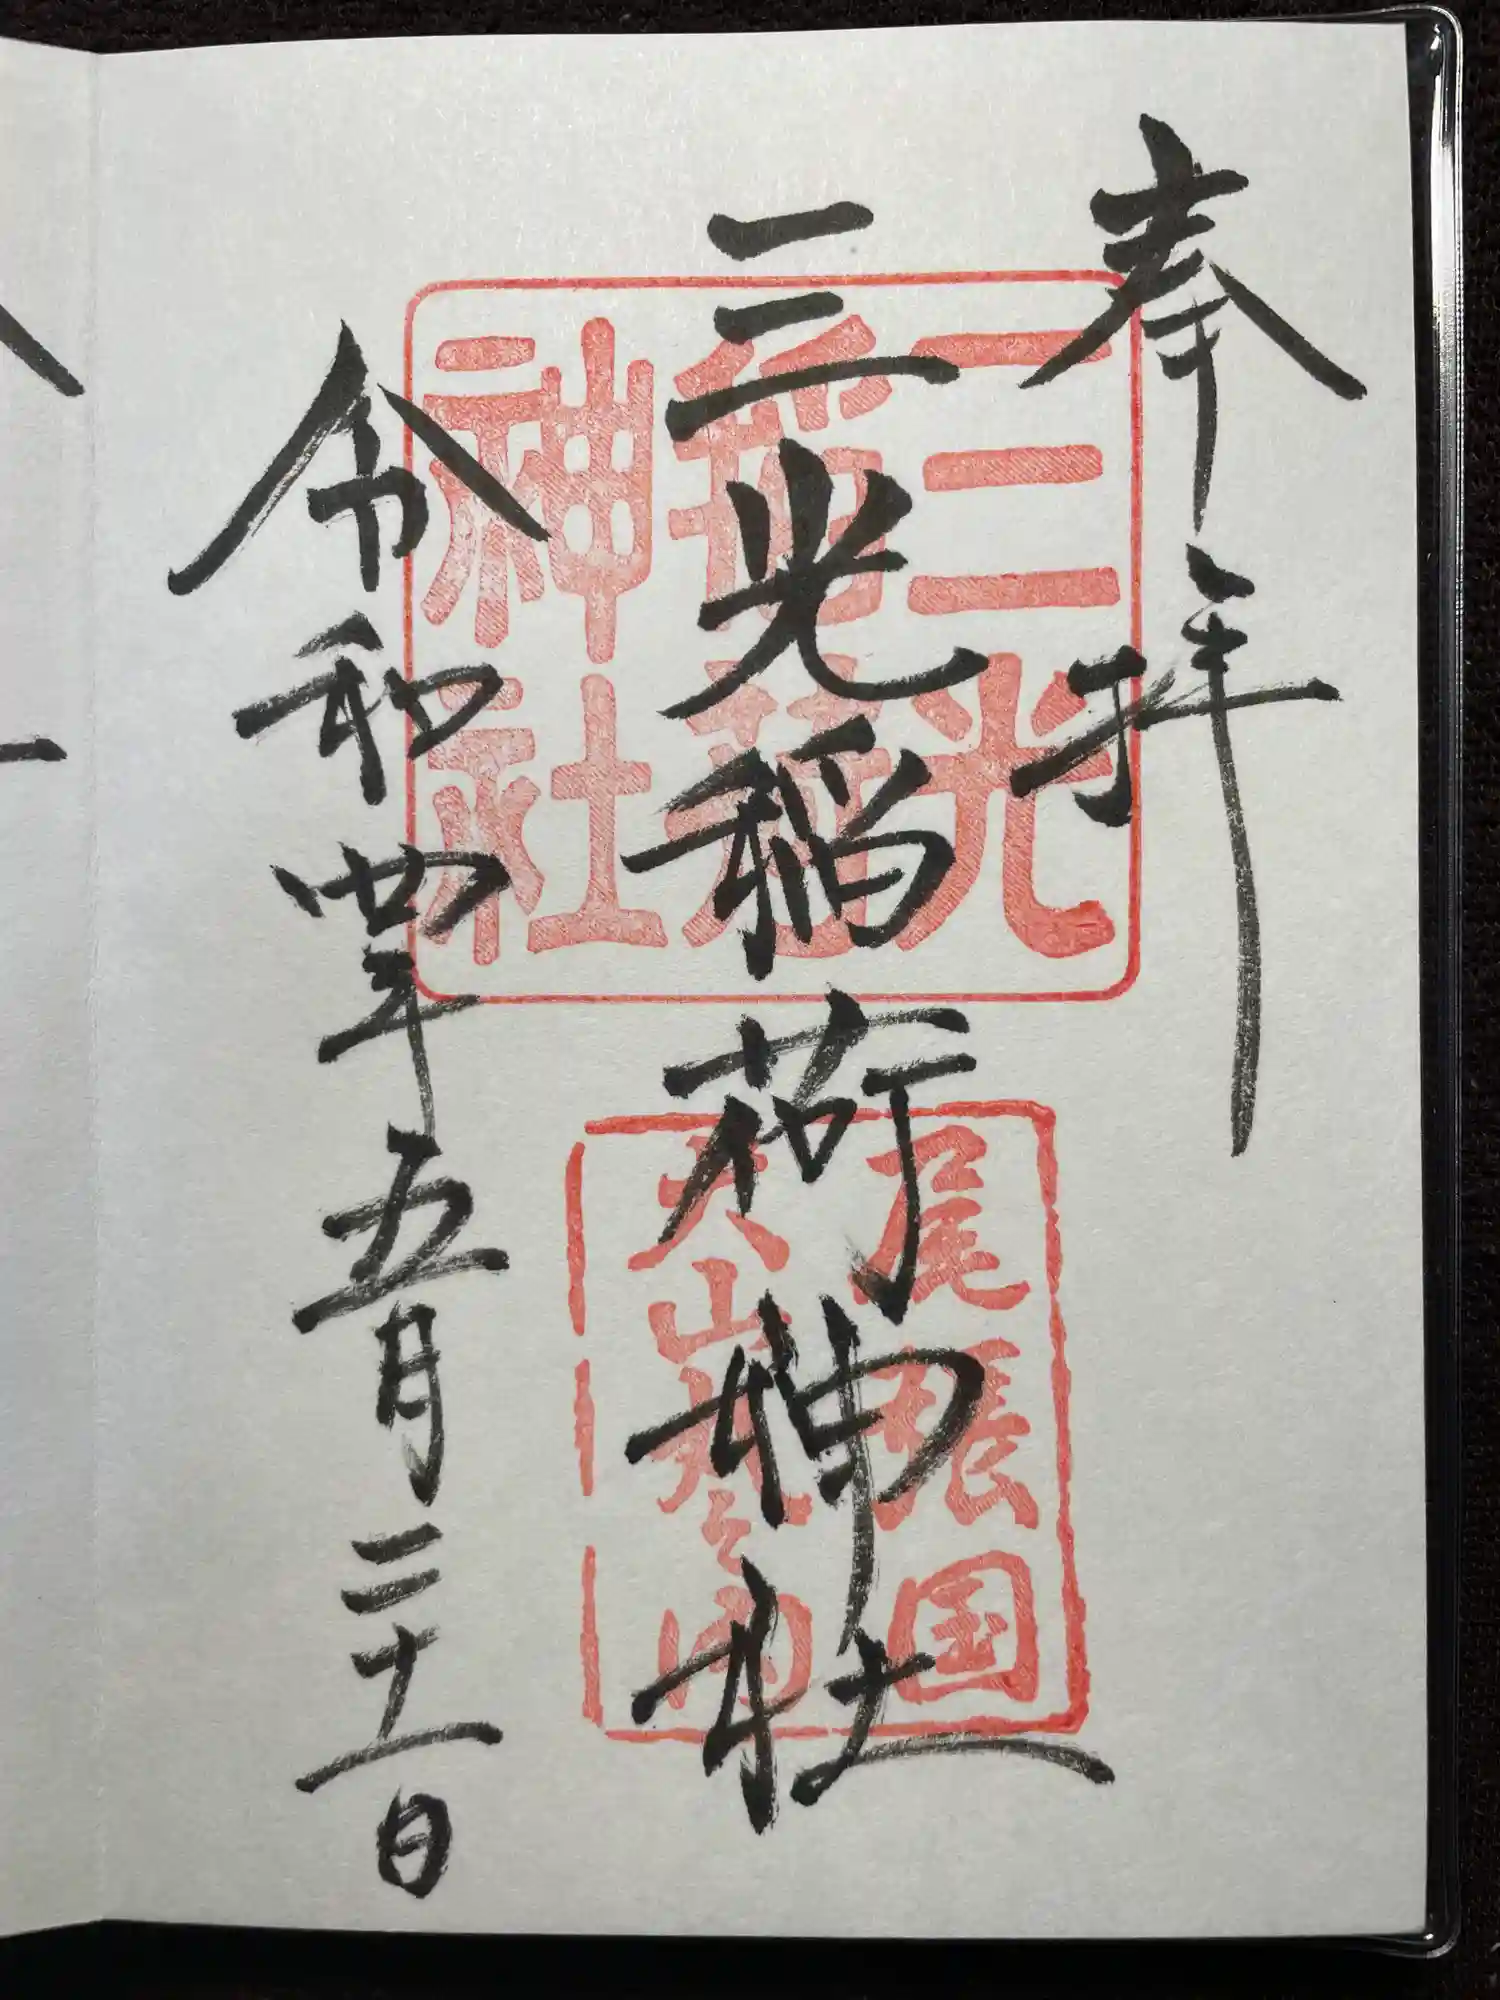 奉拝
三光稲荷神社
令和四年五月二十一日
三光
稲荷
神社
尾張国
犬山城之内